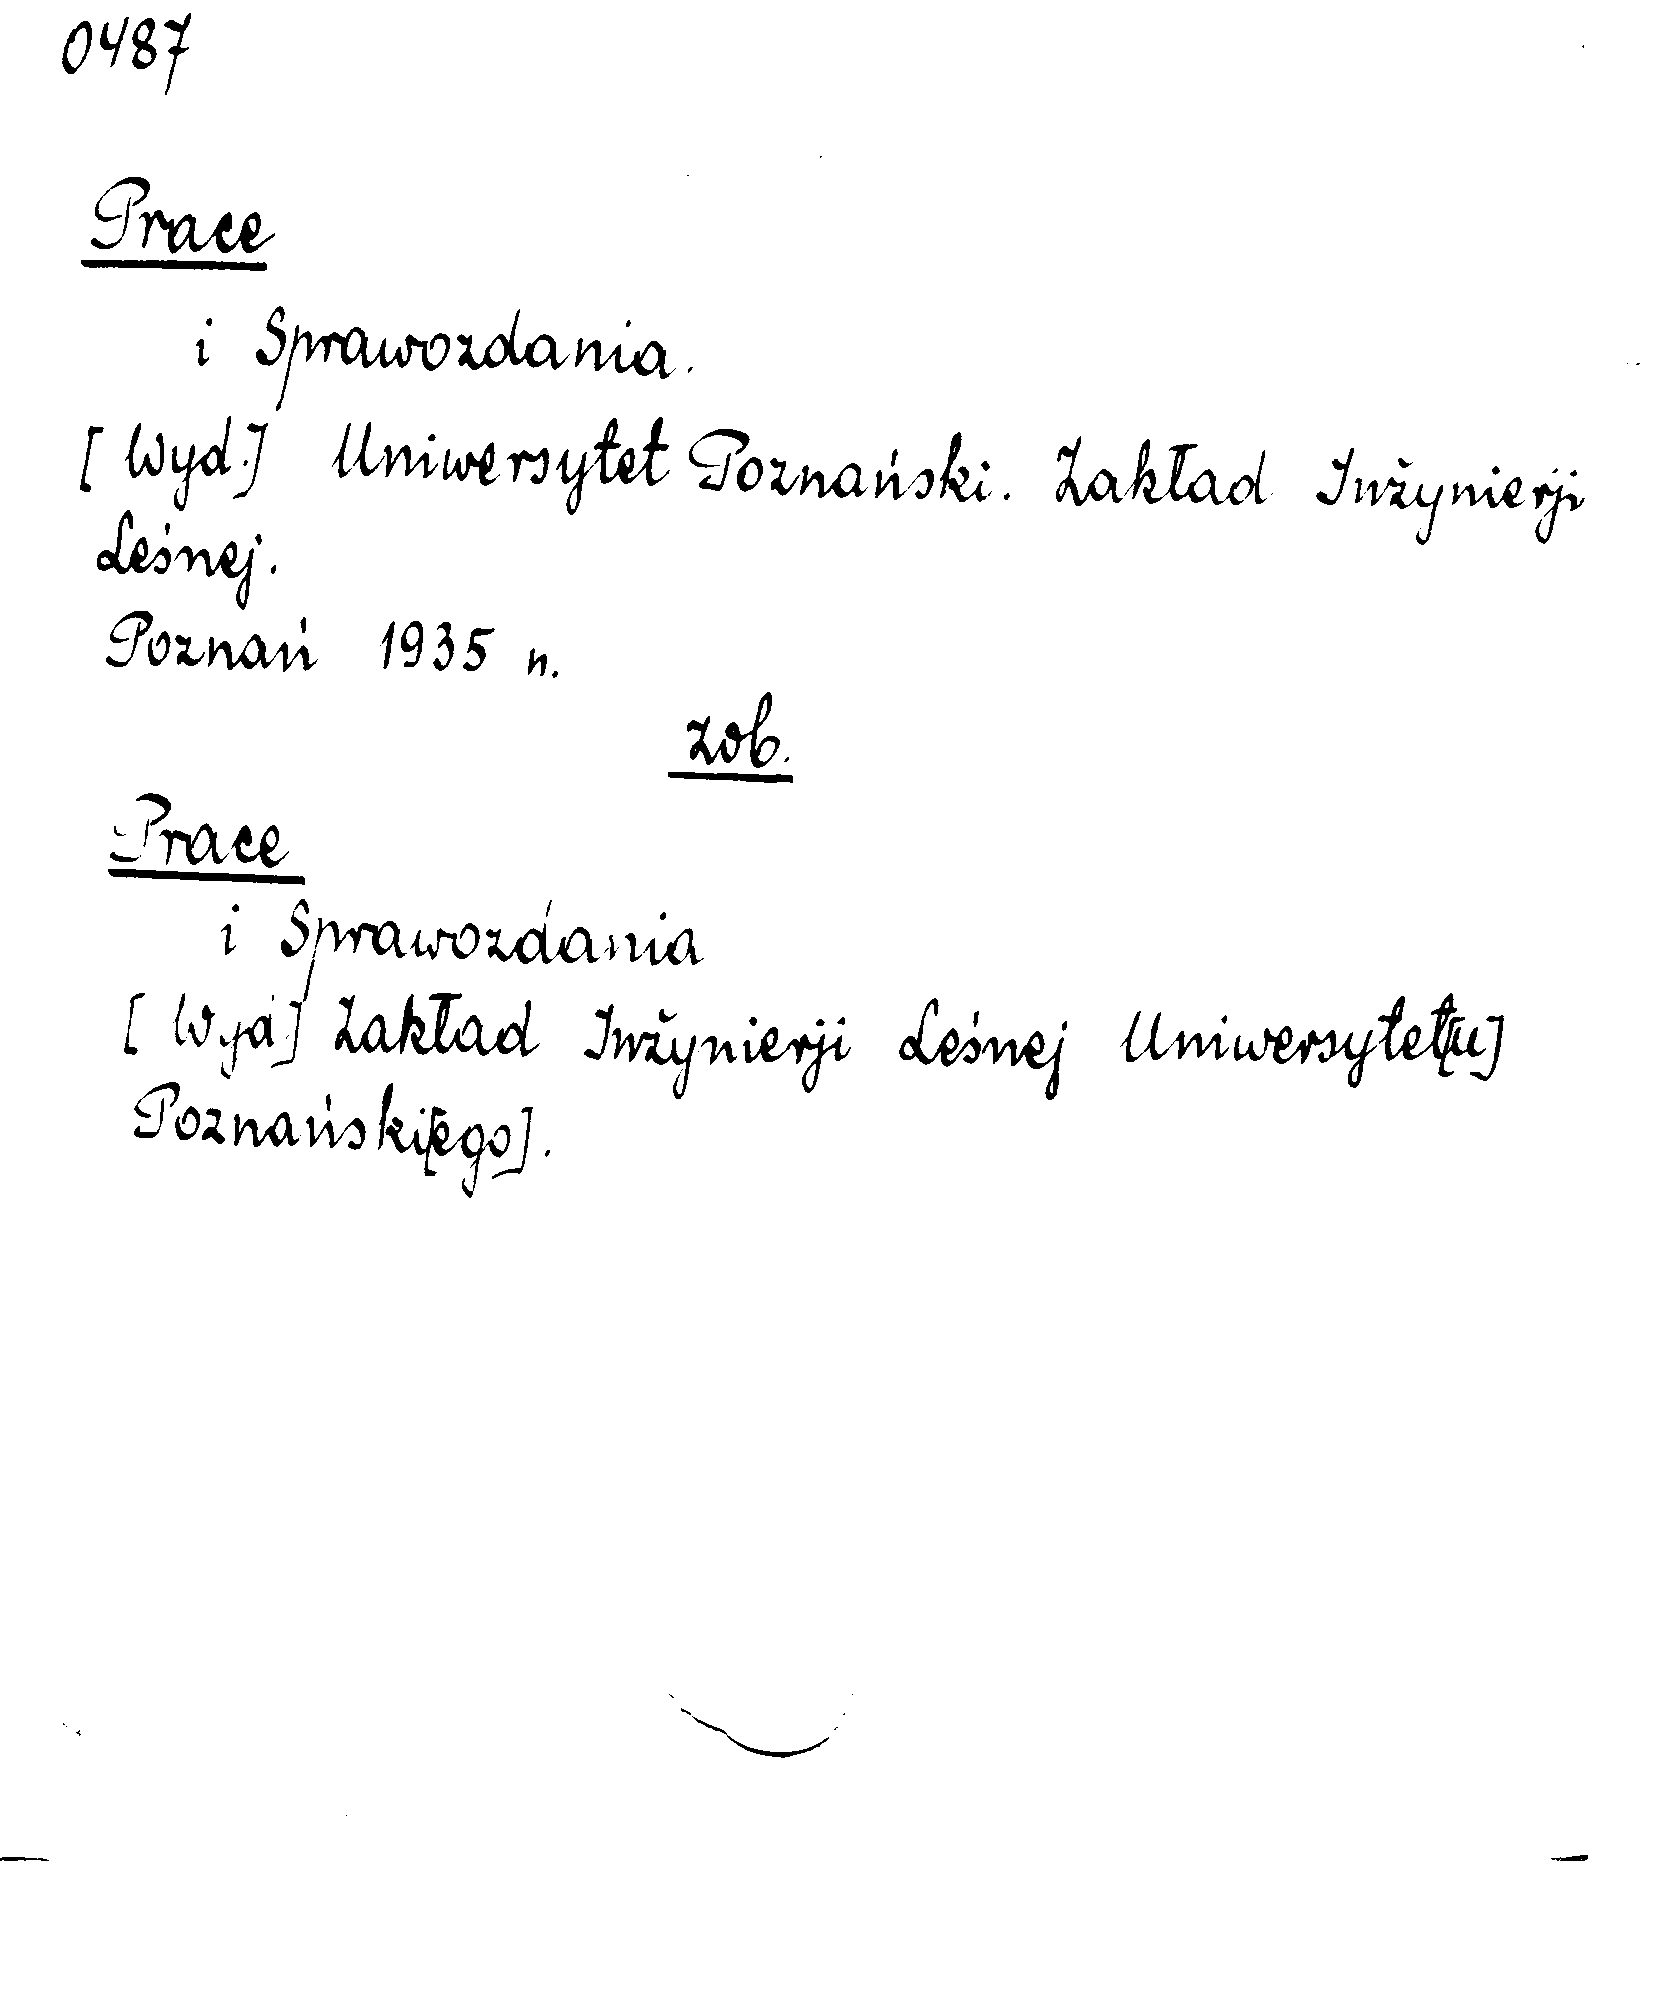 0487
Prace
i Sprawozdania.
[Wyd.] Uniwersytet Poznański. Zakład Inżynierji
Leśnej.
Poznań 1935 n.
zob.
Prace
i Sprawozdania
[Wyd] Zakład Inżynierji Leśnej Uniwersytet[u]
Poznański[ego].